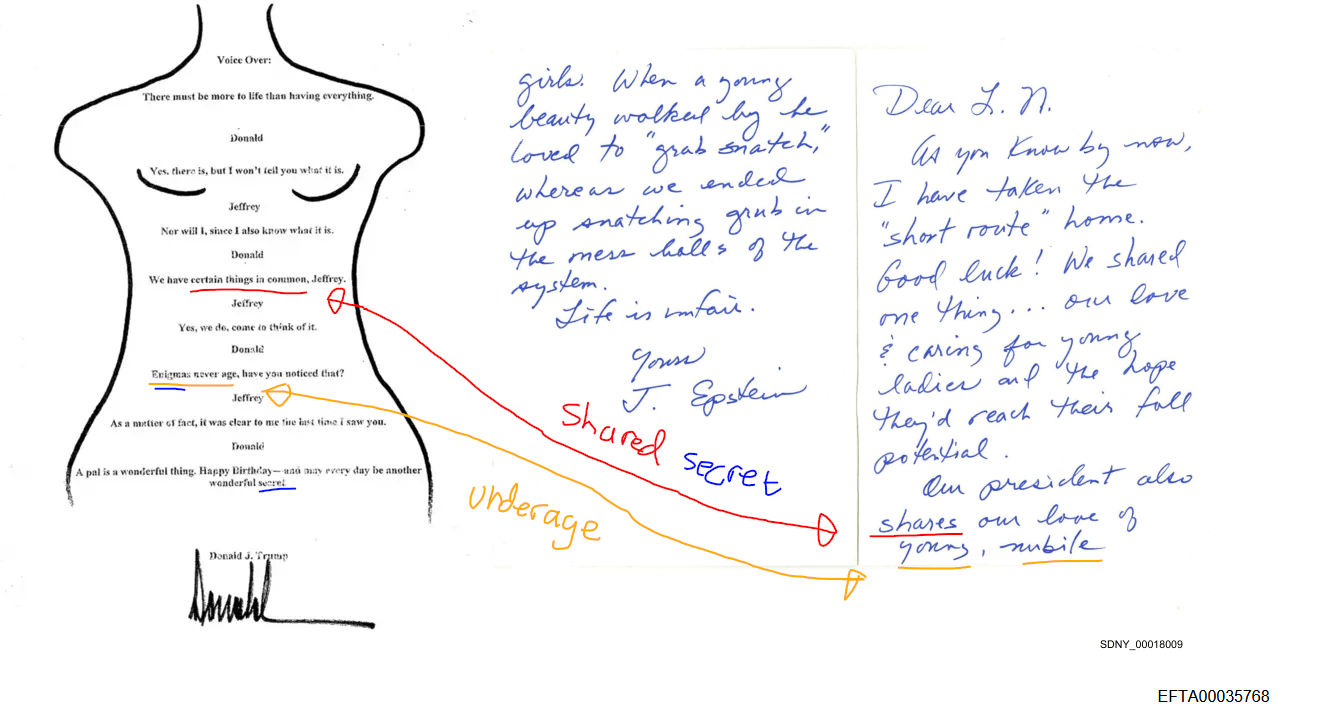 Voice Over:
There must be more to life than having everything.
Donald
Yes, there is, but I won't tell you what it is.
Jeffrey
Nor will I, since I also know what it is.
Donald
We have certain things in common, Jeffrey.
Jeffrey
Yes, we do, come to think of it.
Donald
Enigmas never age, have you noticed that?
Jeffrey
As a matter of fact, it was clear to me the last time i saw you.
Donald
A pal is a wonderful thing. Happy Birthday — and may every day be another
wonderful secret.
Donald J. Trump
Donald
Shared secret
underage
girls. When a young
beauty walked by he
loved to "grab snatch,"
whereas we ended
up snatching grub in
the mess halls of the
system.
Life is unfair.
Yours
J. Epstein
Dear L. N.
As you know by now,
I have taken the
"short route" home.
Good luck! We shared
one thing... our love
& caring for young
ladies and the hope
they'd reach their full
potential.
Our president also
shares our love of
young, nubile
SDNY_00018009
EFTA00035768